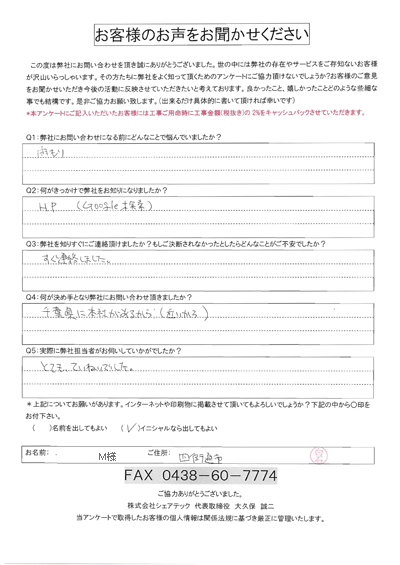 お客様のお声をお聞かせください
この度は弊社にお問い合わせを頂き誠にありがとうございました。世の中には弊社の存在やサービスをご存知ないお客様
が沢山いらっしゃいます。その方たちに弊社をよく知って頂くためのアンケートにご協力頂けないでしょうか？お客様のご意見
をお聞かせいただき今後の活動に反映させていただきたいと考えております。良かったこと、嬉しかったことどのような些細な
事でも結構です。是非ご協力お願い致します。（出来るだけ具体的に書いて頂ければ幸いです）
*本アンケートにご記入いただいたお客様には工事ご用命時に工事金額(税抜き)の 2%をキャッシュバックさせていただきます。
Q1：弊社にお問い合わせになる前にどんなことで悩んでいましたか？
雨もり
Q2：何がきっかけで弊社をお知りになりましたか？
HP （Google検索）
Q3：弊社を知りすぐにご連絡頂けましたか？もしご決断されなかったとしたらどんなことがご不安でしたか？
すぐ連絡しました。
Q4：何が決め手となり弊社にお問い合わせ頂きましたか？
千葉県に本社があるから（近いから）
Q5：実際に弊社担当者がお伺いしていかがでしたか？
とても、ていねいでした。
* 上記についてお願いがあります。インターネットや印刷物に掲載させて頂いてもよろしいでしょうか？下記の中から〇印を
お付け下さい。
（　）名前を出してもよい　（✓）イニシャルなら出してもよい
お名前： M様 ご住所： 四街道市
FAX 0438－60－7774
ご協力ありがとうございました。
株式会社シェアテック 代表取締役 大久保 誠二
当アンケートで取得したお客様の個人情報は関係法規に基づき厳正に管理いたします。